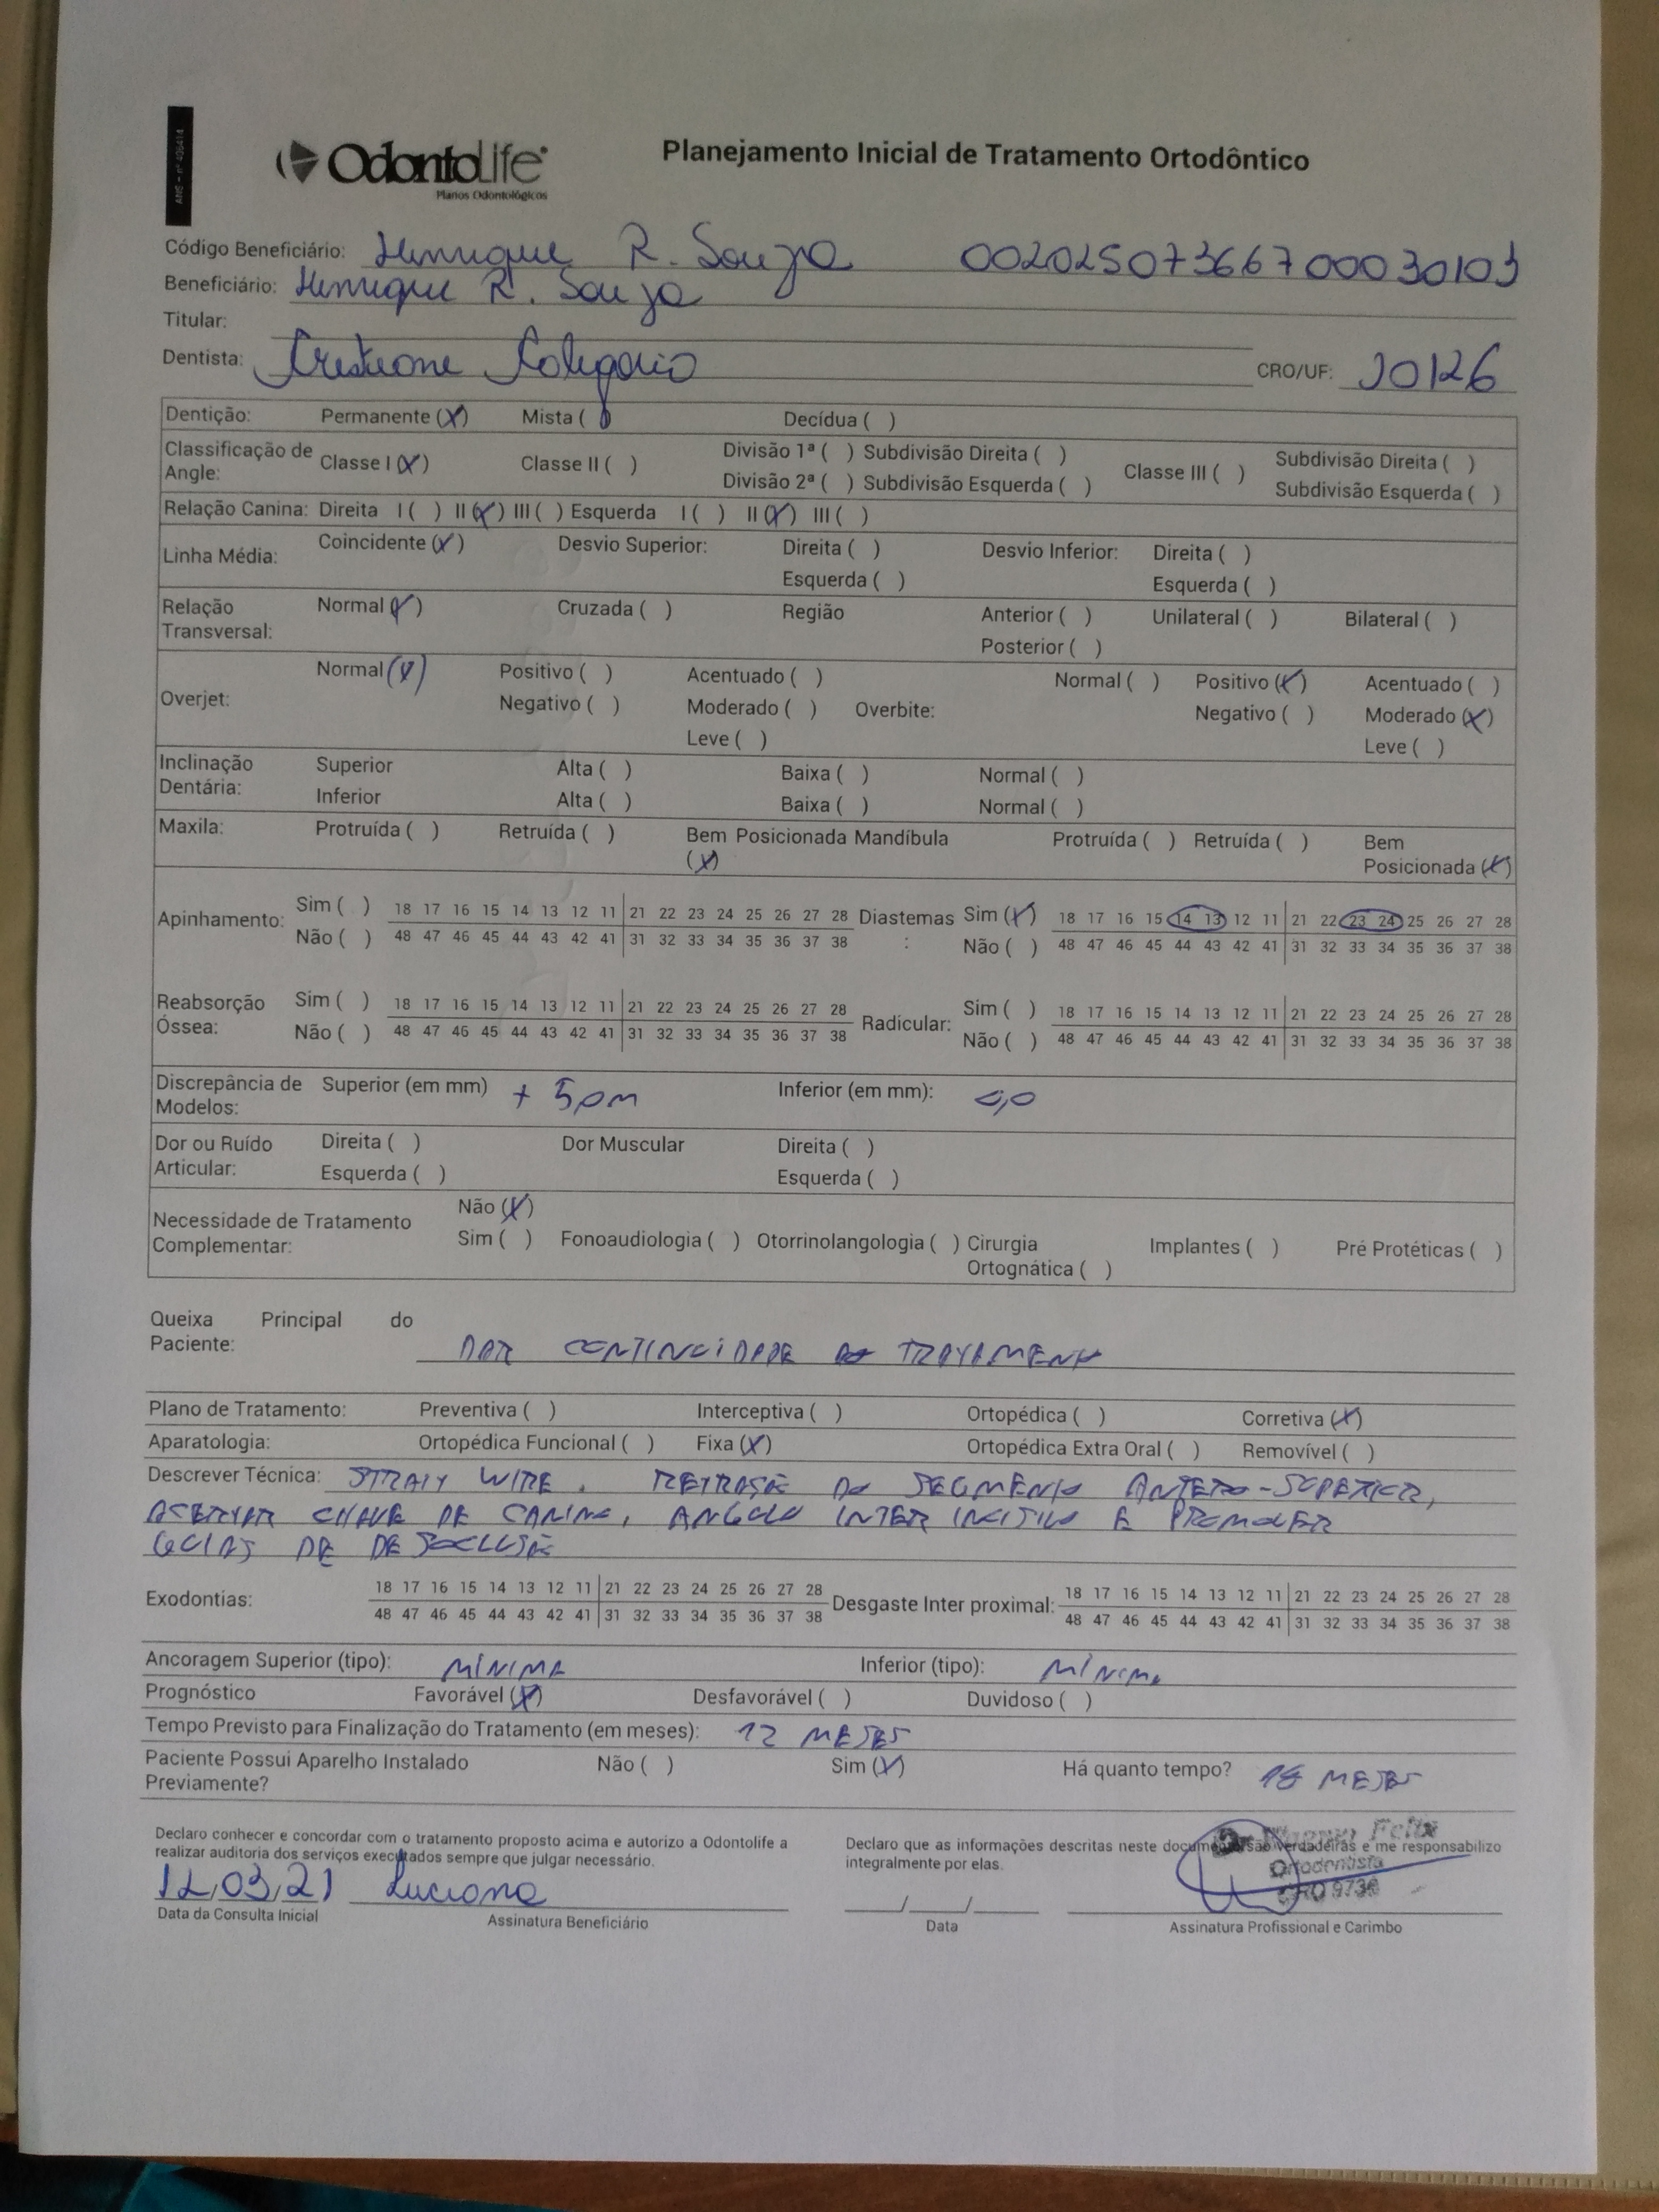 ANS - nº 406414
OdontoLife
Planos Odontológicos
Planejamento Inicial de Tratamento Ortodôntico
Código Beneficiário: Henrique R. Souza 00202507366700030103
Beneficiário: Henrique R. Souza
Titular:
Dentista: CRO/UF: 20126
Dentição: Permanente (X) Mista ( ) Decídua ( )
Classificação de Angle: Classe I (X) Classe II ( ) Divisão 1ª ( ) Subdivisão Direita ( ) Classe III ( ) Subdivisão Direita ( )
Divisão 2ª ( ) Subdivisão Esquerda ( ) Subdivisão Esquerda ( )
Relação Canina: Direita I ( ) II (X) III ( ) Esquerda I ( ) II (X) III ( )
Linha Média: Coincidente (X) Desvio Superior: Direita ( ) Desvio Inferior: Direita ( )
Esquerda ( ) Esquerda ( )
Relação Transversal: Normal (X) Cruzada ( ) Região Anterior ( ) Unilateral ( ) Bilateral ( )
Posterior ( )
Overjet: Normal (X) Positivo ( ) Acentuado ( ) Overbite: Normal ( ) Positivo (X) Acentuado ( )
Negativo ( ) Moderado ( ) Negativo ( ) Moderado (X)
Leve ( ) Leve ( )
Inclinação Dentária: Superior Alta ( ) Baixa ( ) Normal ( )
Inferior Alta ( ) Baixa ( ) Normal ( )
Maxila: Protruída ( ) Retruída ( ) Bem Posicionada (X) Mandíbula Protruída ( ) Retruída ( ) Bem Posicionada (X)
Apinhamento: Sim ( ) 18 17 16 15 14 13 12 11 21 22 23 24 25 26 27 28 Diastemas: Sim (X) 18 17 16 15 14 13 12 11 21 22 23 24 25 26 27 28
Não ( ) 48 47 46 45 44 43 42 41 31 32 33 34 35 36 37 38 Não ( ) 48 47 46 45 44 43 42 41 31 32 33 34 35 36 37 38
Reabsorção Óssea: Sim ( ) 18 17 16 15 14 13 12 11 21 22 23 24 25 26 27 28 Radicular: Sim ( ) 18 17 16 15 14 13 12 11 21 22 23 24 25 26 27 28
Não ( ) 48 47 46 45 44 43 42 41 31 32 33 34 35 36 37 38 Não ( ) 48 47 46 45 44 43 42 41 31 32 33 34 35 36 37 38
Discrepância de Modelos: Superior (em mm) + 5,0m Inferior (em mm): 0,0
Dor ou Ruído Articular: Direita ( ) Dor Muscular Direita ( )
Esquerda ( ) Esquerda ( )
Necessidade de Tratamento Complementar: Não (X)
Sim ( ) Fonoaudiologia ( ) Otorrinolangologia ( ) Cirurgia Ortognática ( ) Implantes ( ) Pré Protéticas ( )
Queixa Principal do
Paciente: DAR CONTINUIDADE AO TRATAMENTO
Plano de Tratamento: Preventiva ( ) Interceptiva ( ) Ortopédica ( ) Corretiva (X)
Aparatologia: Ortopédica Funcional ( ) Fixa (X) Ortopédica Extra Oral ( ) Removível ( )
Descrever Técnica: WIRE. RETRAÇÃO DO SEGMENTO ANTERO-SUPERIOR,
ACERTAR CHAVE DE CANINO, ANGULO INTER INCISIVO E PROMOVER
GUIAS DE DESOCLUSÃO
Exodontias: 18 17 16 15 14 13 12 11 21 22 23 24 25 26 27 28 Desgaste Inter proximal: 18 17 16 15 14 13 12 11 21 22 23 24 25 26 27 28
48 47 46 45 44 43 42 41 31 32 33 34 35 36 37 38 48 47 46 45 44 43 42 41 31 32 33 34 35 36 37 38
Ancoragem Superior (tipo): MÍNIMA Inferior (tipo): MÍNIMA
Prognóstico Favorável (X) Desfavorável ( ) Duvidoso ( )
Tempo Previsto para Finalização do Tratamento (em meses): 12 MESES
Paciente Possui Aparelho Instalado Previamente? Não ( ) Sim (X) Há quanto tempo? 18 MESES
Declaro conhecer e concordar com o tratamento proposto acima e autorizo a Odontolife a
realizar auditoria dos serviços executados sempre que julgar necessário.
Declaro que as informações descritas neste documento são verdadeiras e me responsabilizo
integralmente por elas.
Felix
Ortodontista
CRO 9736
12,03,21 Luciana
Data da Consulta Inicial Assinatura Beneficiário
Data Assinatura Profissional e Carimbo